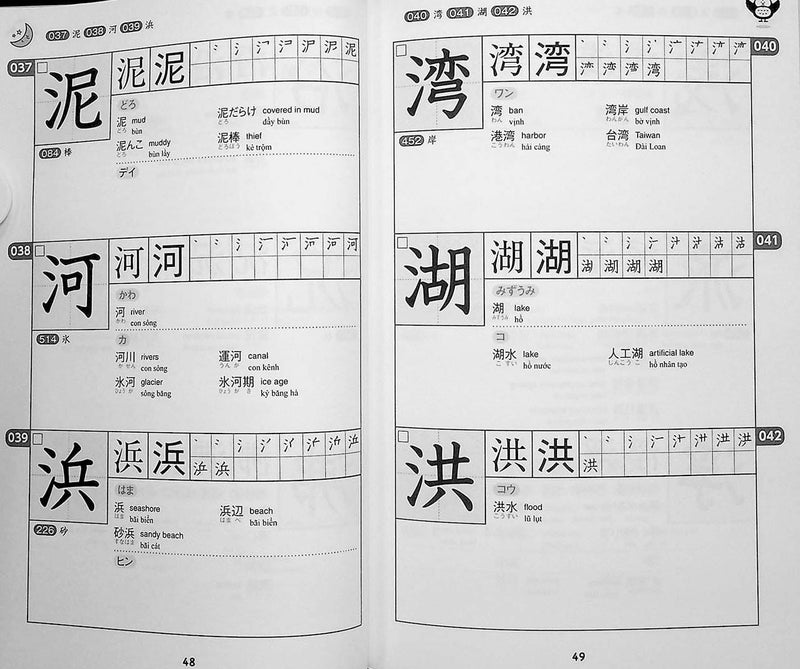 037 泥 038 河 039 浜
037
泥 泥 泥
どろ
泥 mud
どろ bùn
泥だらけ covered in mud
どろ đầy bùn
泥んこ muddy
どろ bùn lầy
泥棒 thief
どろぼう kẻ trộm
084 棒
デイ
038
河 河 河
かわ
河 river
かわ con sông
514 氷
カ
河川 rivers
かせん con sông
運河 canal
うんが con kênh
氷河 glacier
ひょうが sông băng
氷河期 ice age
ひょうがき kỷ băng hà
039
浜 浜 浜
浜 浜
はま
浜 seashore
はま bãi biển
浜辺 beach
はまべ bãi biển
226 砂
砂浜 sandy beach
すなはま bãi cát
ヒン
48
040 湾 041 湖 042 洪
040
湾 湾 湾
ワン
湾 ban
わん vịnh
湾岸 gulf coast
わんがん bờ vịnh
452 岸
港湾 harbor
こうわん hải cảng
台湾 Taiwan
たいわん Đài Loan
041
湖 湖 湖
みずうみ
湖 lake
みずうみ hồ
コ
湖水 lake
こすい hồ nước
人工湖 artificial lake
じんこうこ hồ nhân tạo
042
洪 洪 洪
洪
コウ
洪水 flood
こうずい lũ lụt
49